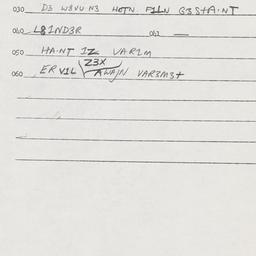 030 D3 W3VU N3 HOTN F1LN G3S+A·NT
060 L81ND3R 062 —
050 HA·NT 1Z VAR1M
060 ER V1L Z3X AWA/N VAR3M3+